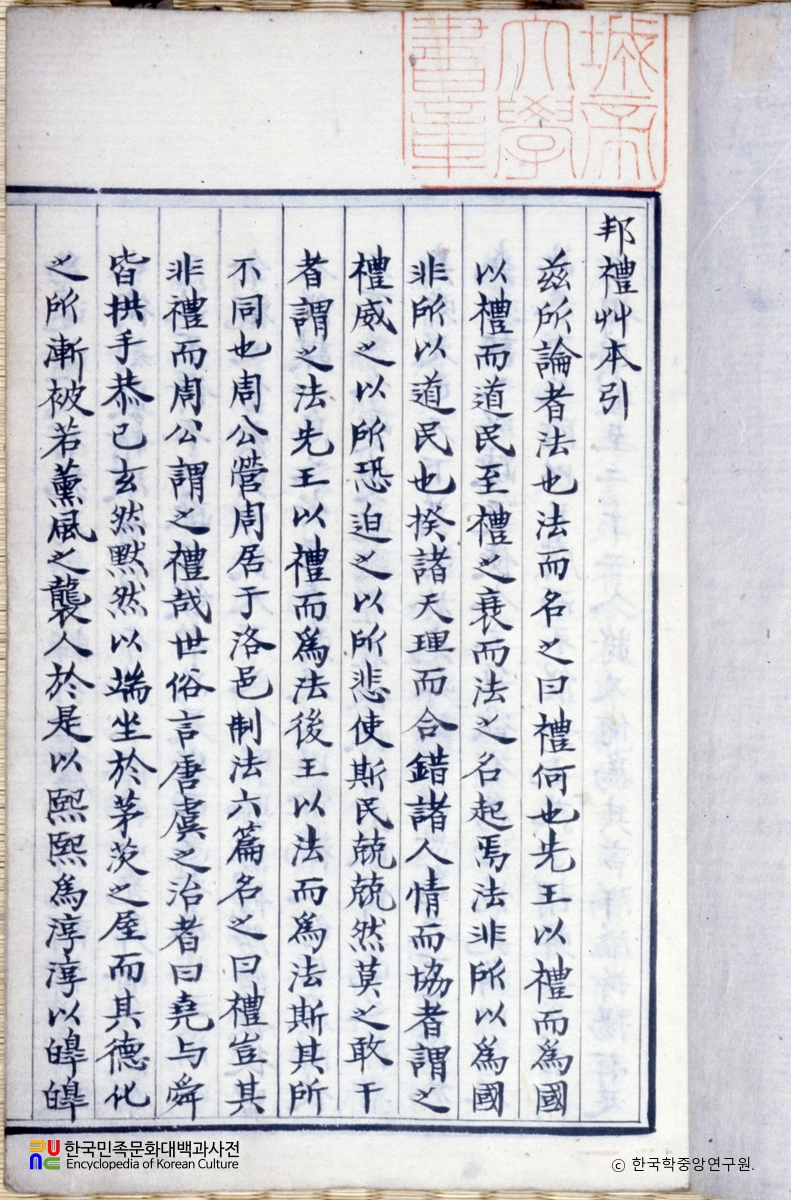 城帝
大學
書章
邦禮艸本引
茲所論者法也法而名之曰禮何也先王以禮而爲國
以禮而道民至禮之衰而法之名起焉法非所以爲國
非所以道民也揆諸天理而合錯諸人情而協者謂之
禮威之以所恐迫之以所悲使斯民兢兢然莫之敢干
者謂之法先王以禮而爲法後王以法而爲法斯其所
不同也周公營周居于洛邑制法六篇名之曰禮豈其
非禮而周公謂之禮哉世俗言唐虞之治者曰堯与舜
皆拱手恭己玄然默然以端坐於茅茨之屋而其德化
之所漸被若薰風之襲人於是以熙熙爲淳淳以皥皥
한국민족문화대백과사전
Encyclopedia of Korean Culture
ⓒ 한국학중앙연구원.